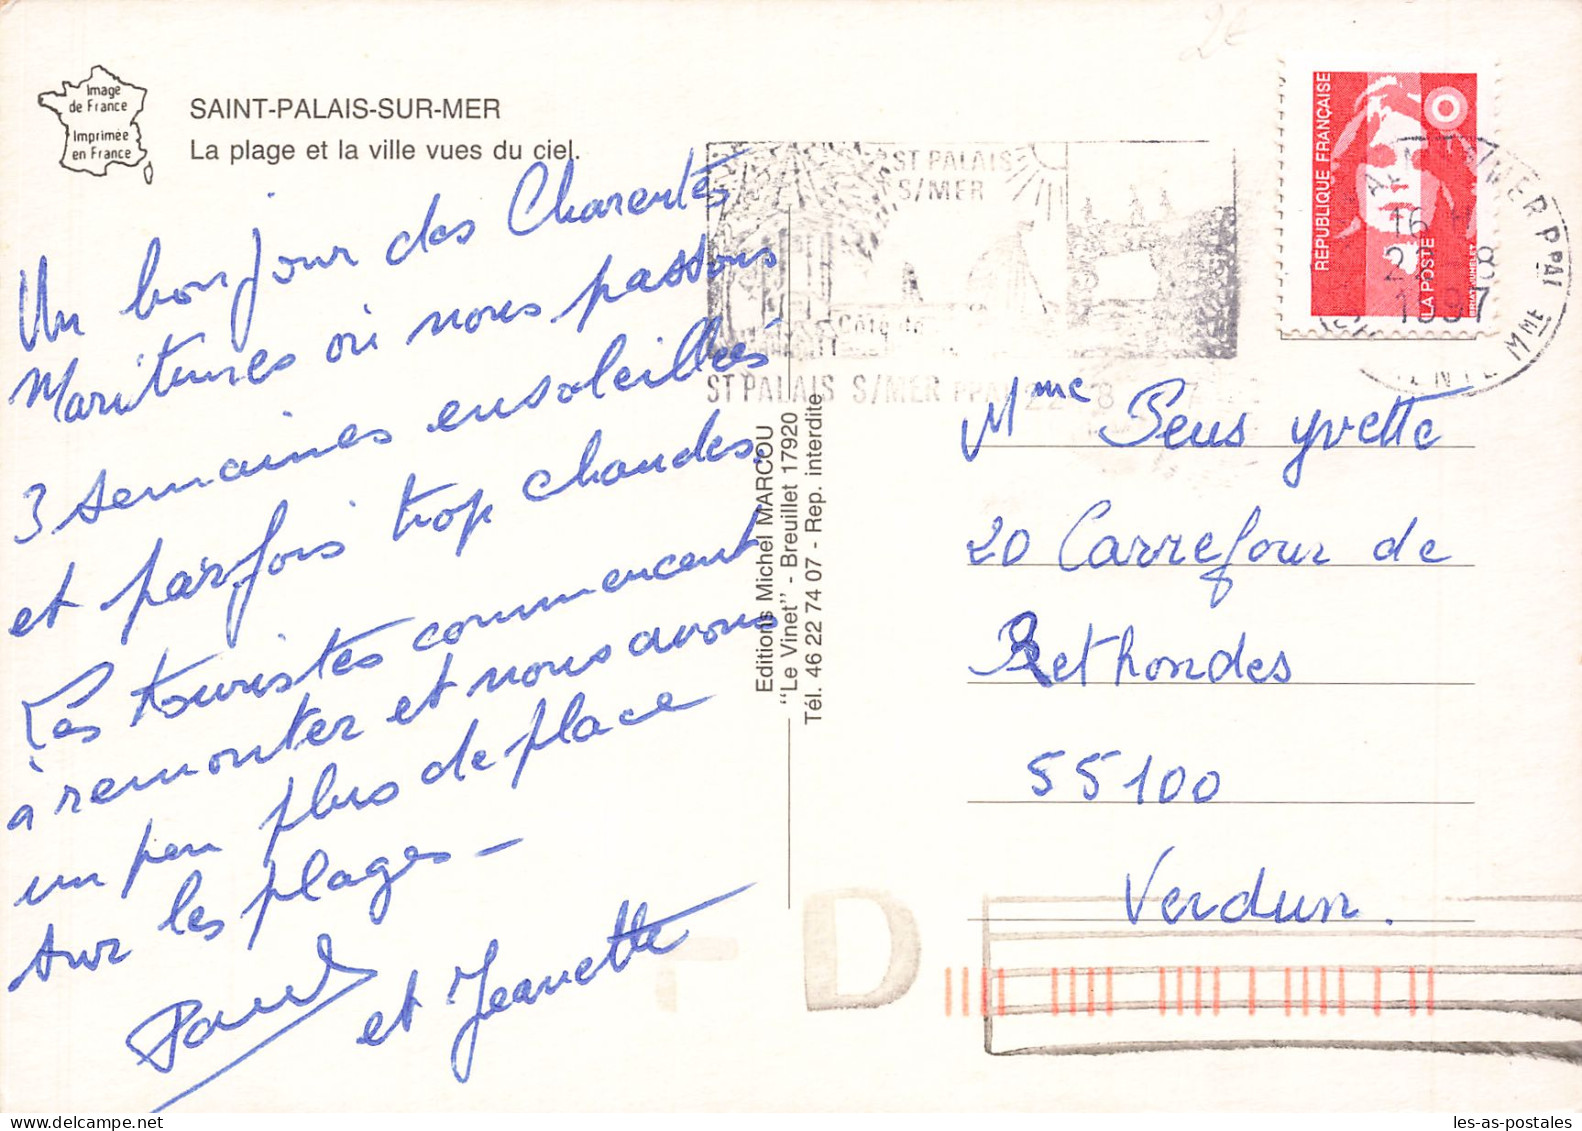 2€
Image
de France
Imprimée
en France
SAINT-PALAIS-SUR-MER
La plage et la ville vues du ciel.
Un bonjour des Charentes
Maritimes où nous passons
3 semaines ensoleillées
et parfois trop chaudes.
Les touristes commencent
à remonter et nous avons
un peu plus de place
sur les plages -
Paul
et Jeanette
Editions Michel MARCOU
"Le Vinet" - Breuillet 17920
Tél. 46 22 74 07 - Rep. interdite
ST PALAIS
S/MER
Côte de
ST PALAIS S/MER PPAL
22 8
RÉPUBLIQUE FRANÇAISE
LA POSTE
16 H
22 8
1997
Mme Peus Yvette
20 Carrefour de
Rethondes
55100
Verdun.
D
les-as-postales